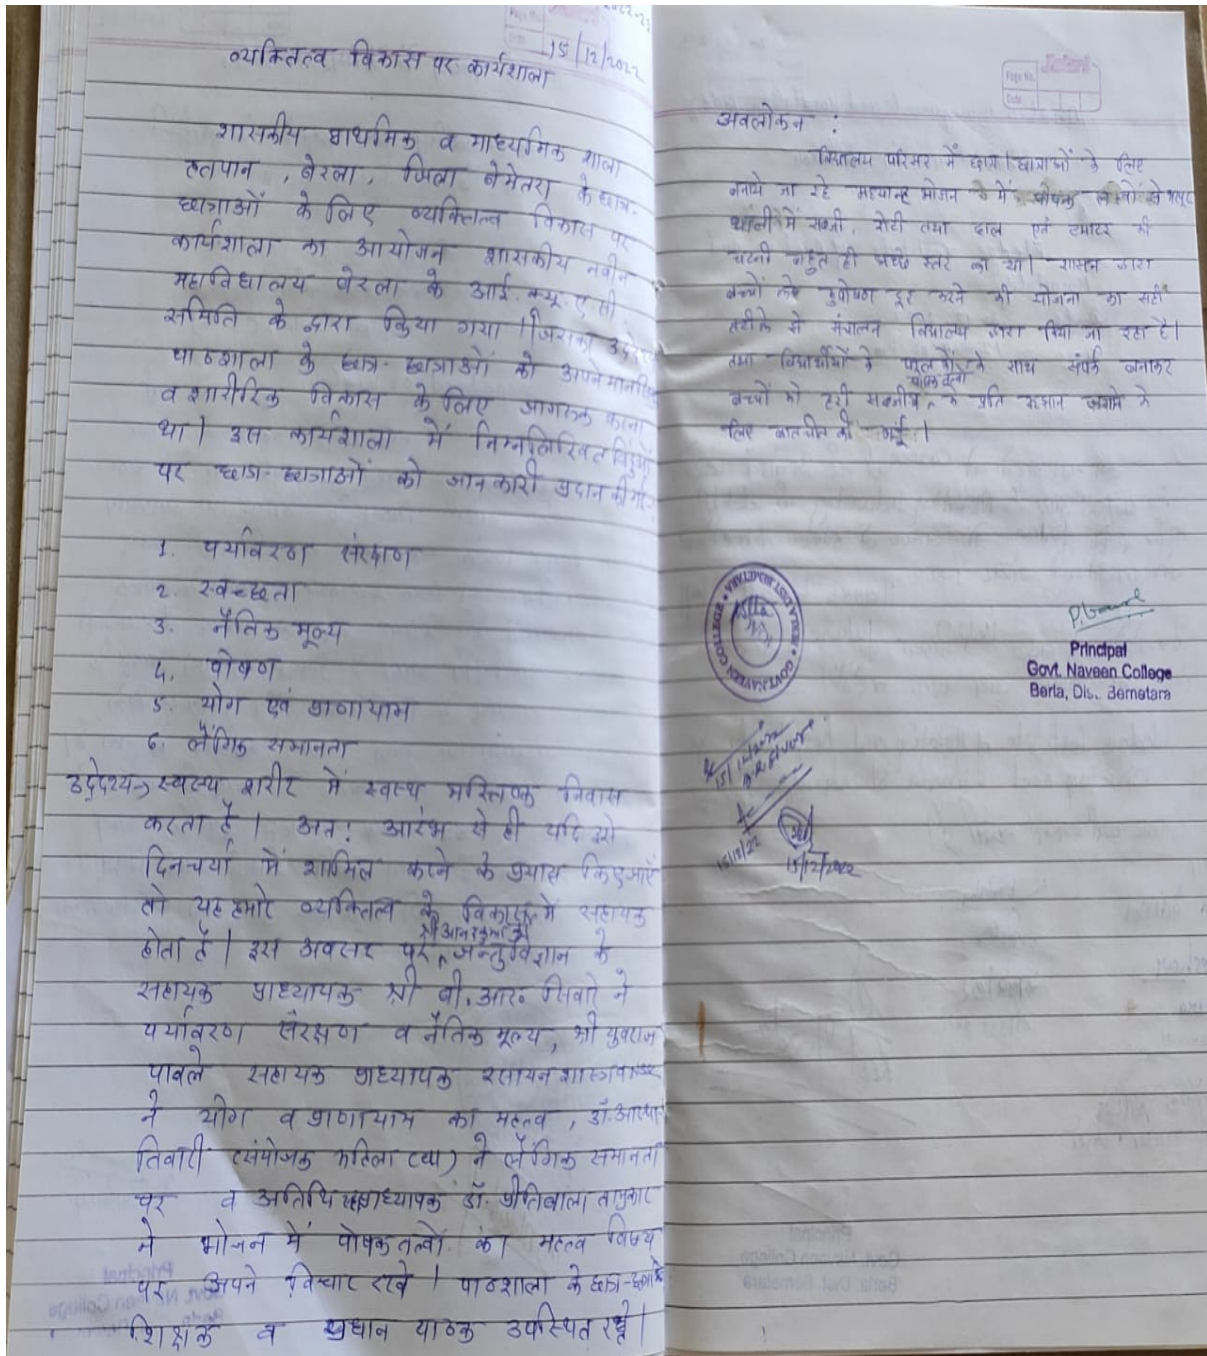 2022-23
15/12/2022
व्यक्तित्व विकास पर कार्यशाला
शासकीय प्राथमिक व माध्यमिक शाला
हतपान, बेरला, जिला बेमेतरा के छात्र-
छात्राओं के लिए व्यक्तित्व विकास पर
कार्यशाला का आयोजन शासकीय नवीन
महाविद्यालय बेरला के आई. क्यू. ए. सी
समिति के द्वारा किया गया। जिसका उद्देश्य
पाठशाला के छात्र-छात्राओं को अपने मानसिक
व शारीरिक विकास के लिए जागरूक करना
था। इस कार्यशाला में निम्नलिखित बिंदुओं
पर छात्र-छात्राओं को जानकारी प्रदान की गई-
1. पर्यावरण संरक्षण
2. स्वच्छता
3. नैतिक मूल्य
4. पोषण
5. योग एवं प्राणायाम
6. लैंगिक समानता
उद्देश्य → स्वस्थ शरीर में स्वस्थ मस्तिष्क निवास
करता है। अतः आरंभ से ही यदि इसे
दिनचर्या में शामिल करने के प्रयास किए जाएँ
तो यह हमारे व्यक्तित्व के विकास में सहायक
होता है। इस अवसर पर जन्तुविज्ञान के
सहायक प्राध्यापक श्री बी. आर. सिवारे ने
पर्यावरण संरक्षण व नैतिक मूल्य, श्री युवराज
पावले सहायक प्राध्यापक रसायन शास्त्र
ने योग व प्राणायाम का महत्व, डॉ. आस्था
तिवारी (संयोजक महिला ) ने लैंगिक समानता
पर व अतिथि प्राध्यापक डॉ. प्रीतिबाला ताम्रकार
ने भोजन में पोषक तत्वों का महत्व विषय
पर अपने विचार रखे। पाठशाला के छात्र-छात्राएं
शिक्षक व प्रधान पाठक उपस्थित रहे।
Page No.
Date
अवलोकन :
विद्यालय परिसर में छात्र/छात्राओं के लिए
बनाये जा रहे मध्यान्ह भोजन में पोषक तत्वों से भरपूर
थाली में सब्जी, रोटी तथा दाल एवं टमाटर की
चटनी बहुत ही अच्छे स्तर का था। शासन द्वारा
बच्चों के कुपोषण दूर करने की योजना का सही
तरीके से संचालन विद्यालय द्वारा किया जा रहा है।
तथा विद्यार्थीयों के पालकों के साथ संपर्क बनाकर
बच्चों को हरी सब्जीयों के प्रति रूझान जगाने के
लिए बातचीत की गई।
GOVT. NAVEEN COLLEGE
Principal
Govt. Naveen College
Berla, Dis.. Bemetara
15/12/2022
15/12/22
15/12/2022